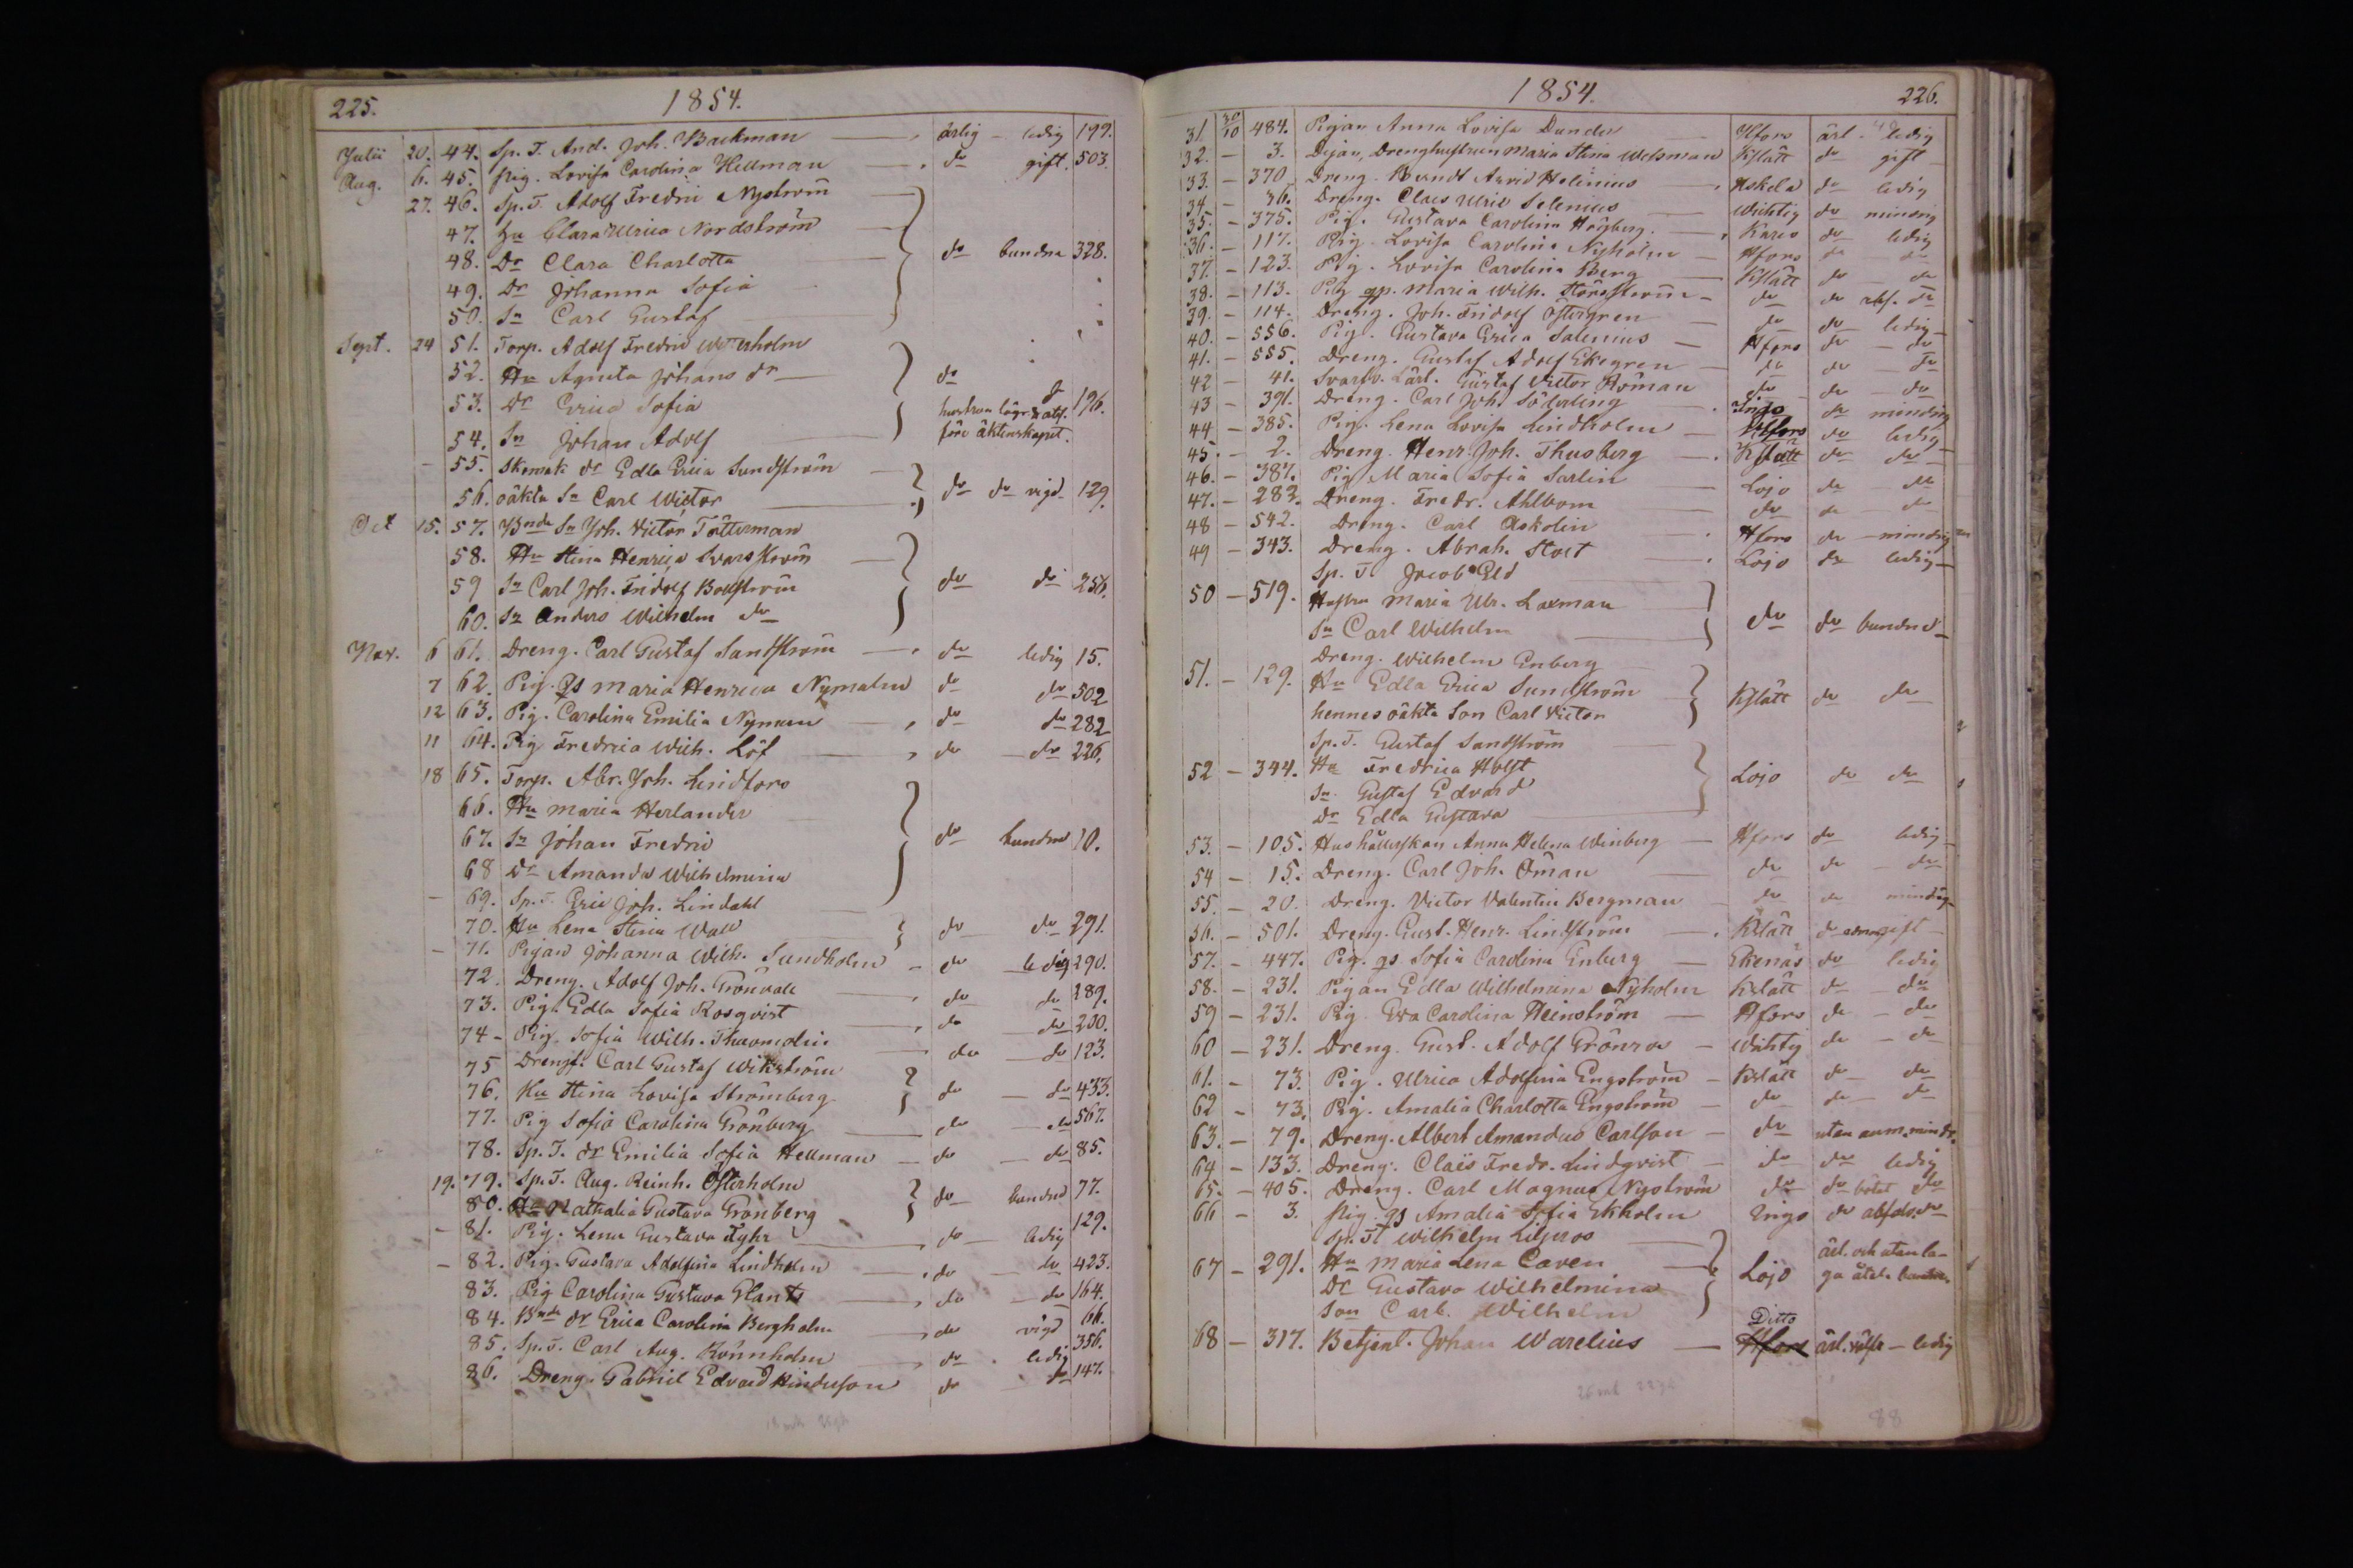 225.
1854.
Julii 20. 44. Sp. T. And. Joh. Backman — ärlig — ledig 199.
Aug. 6. 45. Pig. Lovisa Carolina Hellman — do gift. 503.
27. 46. Sp. T. Adolf Fredric Nyström
47. Hu Clara Ulrica Nordström
48. Dr Clara Charlotta do bundna 328.
49. Dr Johanna Sofia
50. Sn Carl Gustaf
Sept. 24 51. Torp. Adolf Fredric Westerholm
52. Hu Agneta Johans dr — do
53. Dr Erica Sofia hustrun lägr. & abs. 196.
54. Sn Johan Adolf före äktenskapet.
— 55. Skomak dr Edla Erica Sundström
56. oäkta Sn Carl Wictor — do do vigd 129.
Oct 15. 57. Bnde Sn Joh. Victor Tötterman
58. Hu Stina Henrica Svarsström
59 Sn Carl Joh. Fridolf Bollström do do 256.
60. Sn Anders Wilhelm do
Nov. 6 61. Dreng. Carl Gustaf Sandström — do ledig 15.
7 62. Pig. qs Maria Henrica Nymalm do do 502
12 63. Pig. Carolina Emilia Nyman — do do 282
11 64. Pig Fredrica Wilh. Löf — do — do 226.
18 65. Torp. Abr. Joh. Lindfors
66. Hu Maria Herlander
67. Sn Johan Fredric do bundna 10.
68 Dr Amanda Wilhelmina
— 69. Sp. T. Eric Joh. Lindahl
70. Hu Lena Stina Wall do do 291.
— 71. Pigan Johanna Wilh. Sundholm — do — ledig 290.
72. Dreng. Adolf Joh. Grönvall — do do 289.
73. Pig. Edla Sofia Rosqvist — do do 200.
74 — Pig. Sofia Wilh. — do — do 123.
75 Drengk. Carl Gustaf Wikström
76. Hu Stina Lovisa Strömberg do — do 433.
77. Pig Sofia Carolina Grönberg — do — do 567.
78. Sp. T. dr Emilia Sofia Hellman — do — do 85.
19. 79. Sp. T. Aug. Reinh. Österholm
80. Hu Nathalia Gustava Grönberg do bundna 77.
— 81. Pig. Lena Gustava Fyhr — do — ledig 129.
— 82. Pig. Gustava Adolfina Lindholm — do — do 423.
83. Pig Carolina Gustava Glants — do — do 164.
84. Bnde dr Erica Carolina Bergholm — do vigd 66.
85. Sp. T. Carl Aug. Rönnholm — do . ledig 356.
86. Dreng. Gabriel Edvard Hindersson do — do 147.
1854.
226.
31. 30/10 484. Pigan Anna Lovisa Dunder — Hfors ärl. ledig
32. — 3. Dejan, Drenghustrun Maria Stina Welsman Kslätt do gift
33. — 370. Dreng. Berndt Arvid Helenius — Askola do ledig
34 — 36. Dreng. Claes Ulric Selenius — Wichtis do mindrig
35. — 375. Pig. Gustava Carolina Högberg. — Karis do ledig
36. — 117. Pig. Lovisa Carolina Nyholm — Hfors do do
37. — 123. Pig. Lovisa Carolina Berg — Kslätt do — do
38. — 113. Pig qp. Maria Wilh. — do do abs. do
39. — 114. Dreng. Joh. Fridolf Östergren — do do ledig
40. — 556. Pig. Gustava Erica Salenius — Hfors do — do
41. — 555. Dreng. Gustaf Adolf Ekegren — do do — do
42 — 41. Svarfv. Lärl. Gustaf Victor Roman do do — do
43 — 391. Dreng. Carl Joh. Söderling — Ingo do mindrig
44 — 385. Pig. Lena Lovisa Lindholm — Hfors do ledig
45. — 2. Dreng. Henr. Joh. Thusberg — Kslätt do do
46. — 387. Pig Maria Sofia Sarlin — Lojo do — do
47. — 282. Dreng. Fredr. Ahlbom — do do — do
48 — 542. Dreng. Carl Askolin — Hfors do — mindrig
49 — 343. Dreng. Abrah. Stolt — Lojo do ledig
Sp. T. Jacob Eld
50 — 519. Hustru Maria Ulr. Laxman do do bundna
Sn Carl Wilhelm
Dreng. Wilhelm Enberg
51. — 129. Hu Edla Erica Sundström Kslätt do do
hennes oäkta Son Carl Victor
Sp. T. Gustaf Sandström
52 — 344. Hu Fredrica Holst Lojo do do
Sn Gustaf Edvard
Dr Edla Gustava
53. — 105. Hushållerskan Anna Helena Winberg — Hfors do ledig
54 — 15. Dreng. Carl Joh. Öman — do do — do
55. — 20. Dreng. Victor Valentin Bergman — do do mindrig
56. — 501. Dreng. Gust. Henr. Lindström — Kslätt do gift
57. — 447. Pig. qs Sofia Carolina Enberg — Ekenäs do ledig
58. — 231. Pigan Edla Wilhelmina Nyholm Kslätt do — do
59 — 231. Pig. Eva Carolina Heinström — Hfors do — do
60 — 231. Dreng. Gust. Adolf Grönros — Wichtis do — do
61. — 73. Pig. Ulrica Adolfina Engström — Kslätt do — do
62 — 73. Pig. Amalia Charlotta Engström — do do — do
63. — 79. Dreng. Albert Amandus Carlson — do utan anm. mindr.
64 — 133. Dreng. Claës Fredr. Lindqvist — do do ledig
65. — 405. Dreng. Carl Magnus Nyström do do bötat do
66 — 3. Pig. qs Amalia Sofia Ekholm Ingo do absolv. do
Sp. T. Wilhelm Liljeros —
67 — 291. Hu Maria Lena Caven — Lojo ärl. och utan la-
Dr Gustava Wilhelmina ga åtal. bundna.
Son Carl Wilhelm
68 — 317. Betjent. Johan Warelius — Hfors Ditto ärl. välfr. — ledig
88